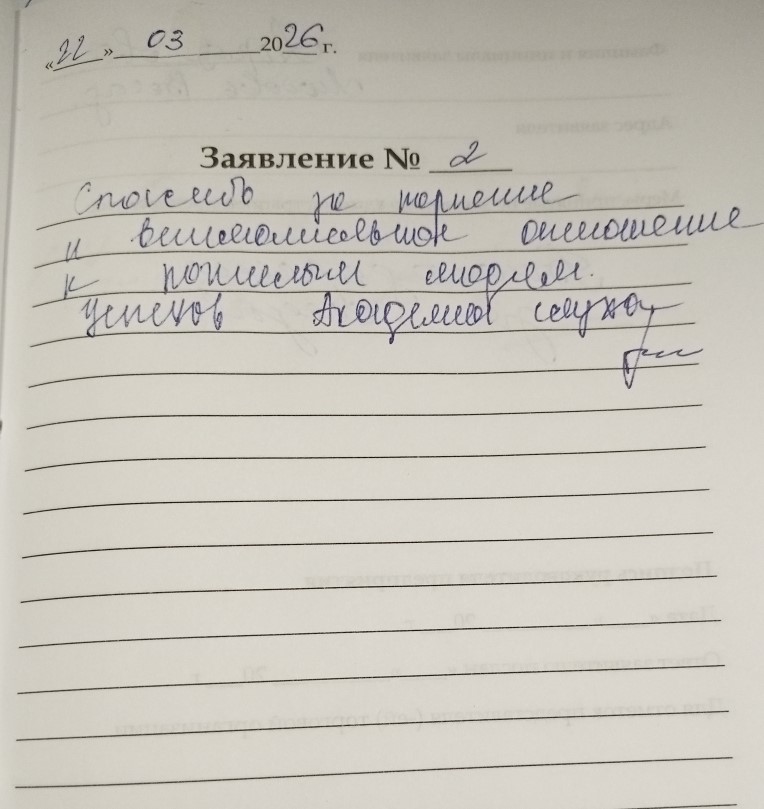 «22» 03 2026 г.
Заявление № 2
Спасибо за терпение
и внимательное отношение
к пожилым людям.
Успехов Академия слуха